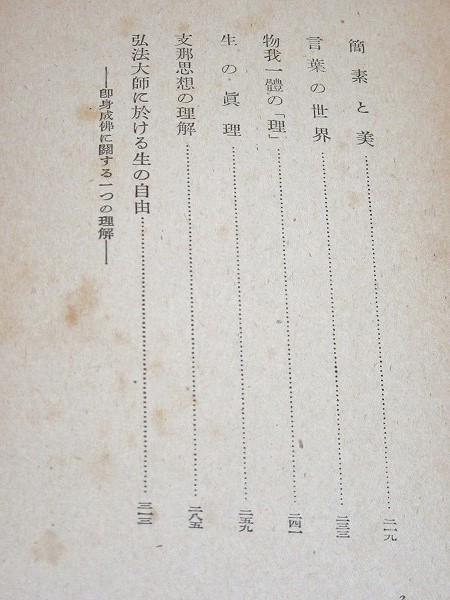 簡素と美……二一九
言葉の世界……二三三
物我一體の「理」……二四一
生の眞理……二五九
支那思想の理解……二八五
弘法大師に於ける生の自由……三一三
――卽身成佛に關する一つの理解――